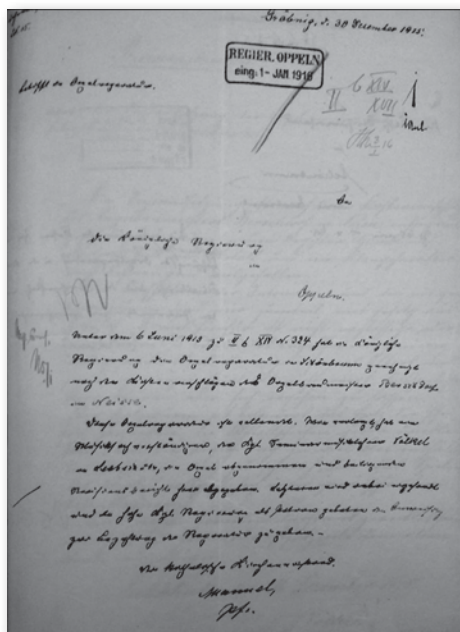 Gröbnig, d. 30 Dezember 1915.
REGIER. OPPELN
eing. 1 - JAN 1916
II b XIV
XVII
1
betrifft die Orgelreparatur.
An
die Königliche Regierung
in
Oppeln.
Unter dem 6 Juni 1913 zu II b XIV N. 324 hat die Königliche
Regierung die Orgelreparatur in Schönbrunn genehmigt
nach den Kostenanschlägen des Orgelbaumeister Berschdorf
in Neisse.
Diese Orgelreparatur ist vollendet. Wie verlangt, hat ein
Musiksachverständiger, der Kgl. Seminarmusiklehrer Völkel
in Leobschütz, die Orgel abgenommen und beiliegenden
Revisionsbericht hier abgegeben. Letzterer wird anbei
und die hohe Kgl. Regierung als Patron gebeten die Anweisung
zur Bezahlung der Reparatur zu geben.-
Der katholische Kirchenvorstand.
Pfr.